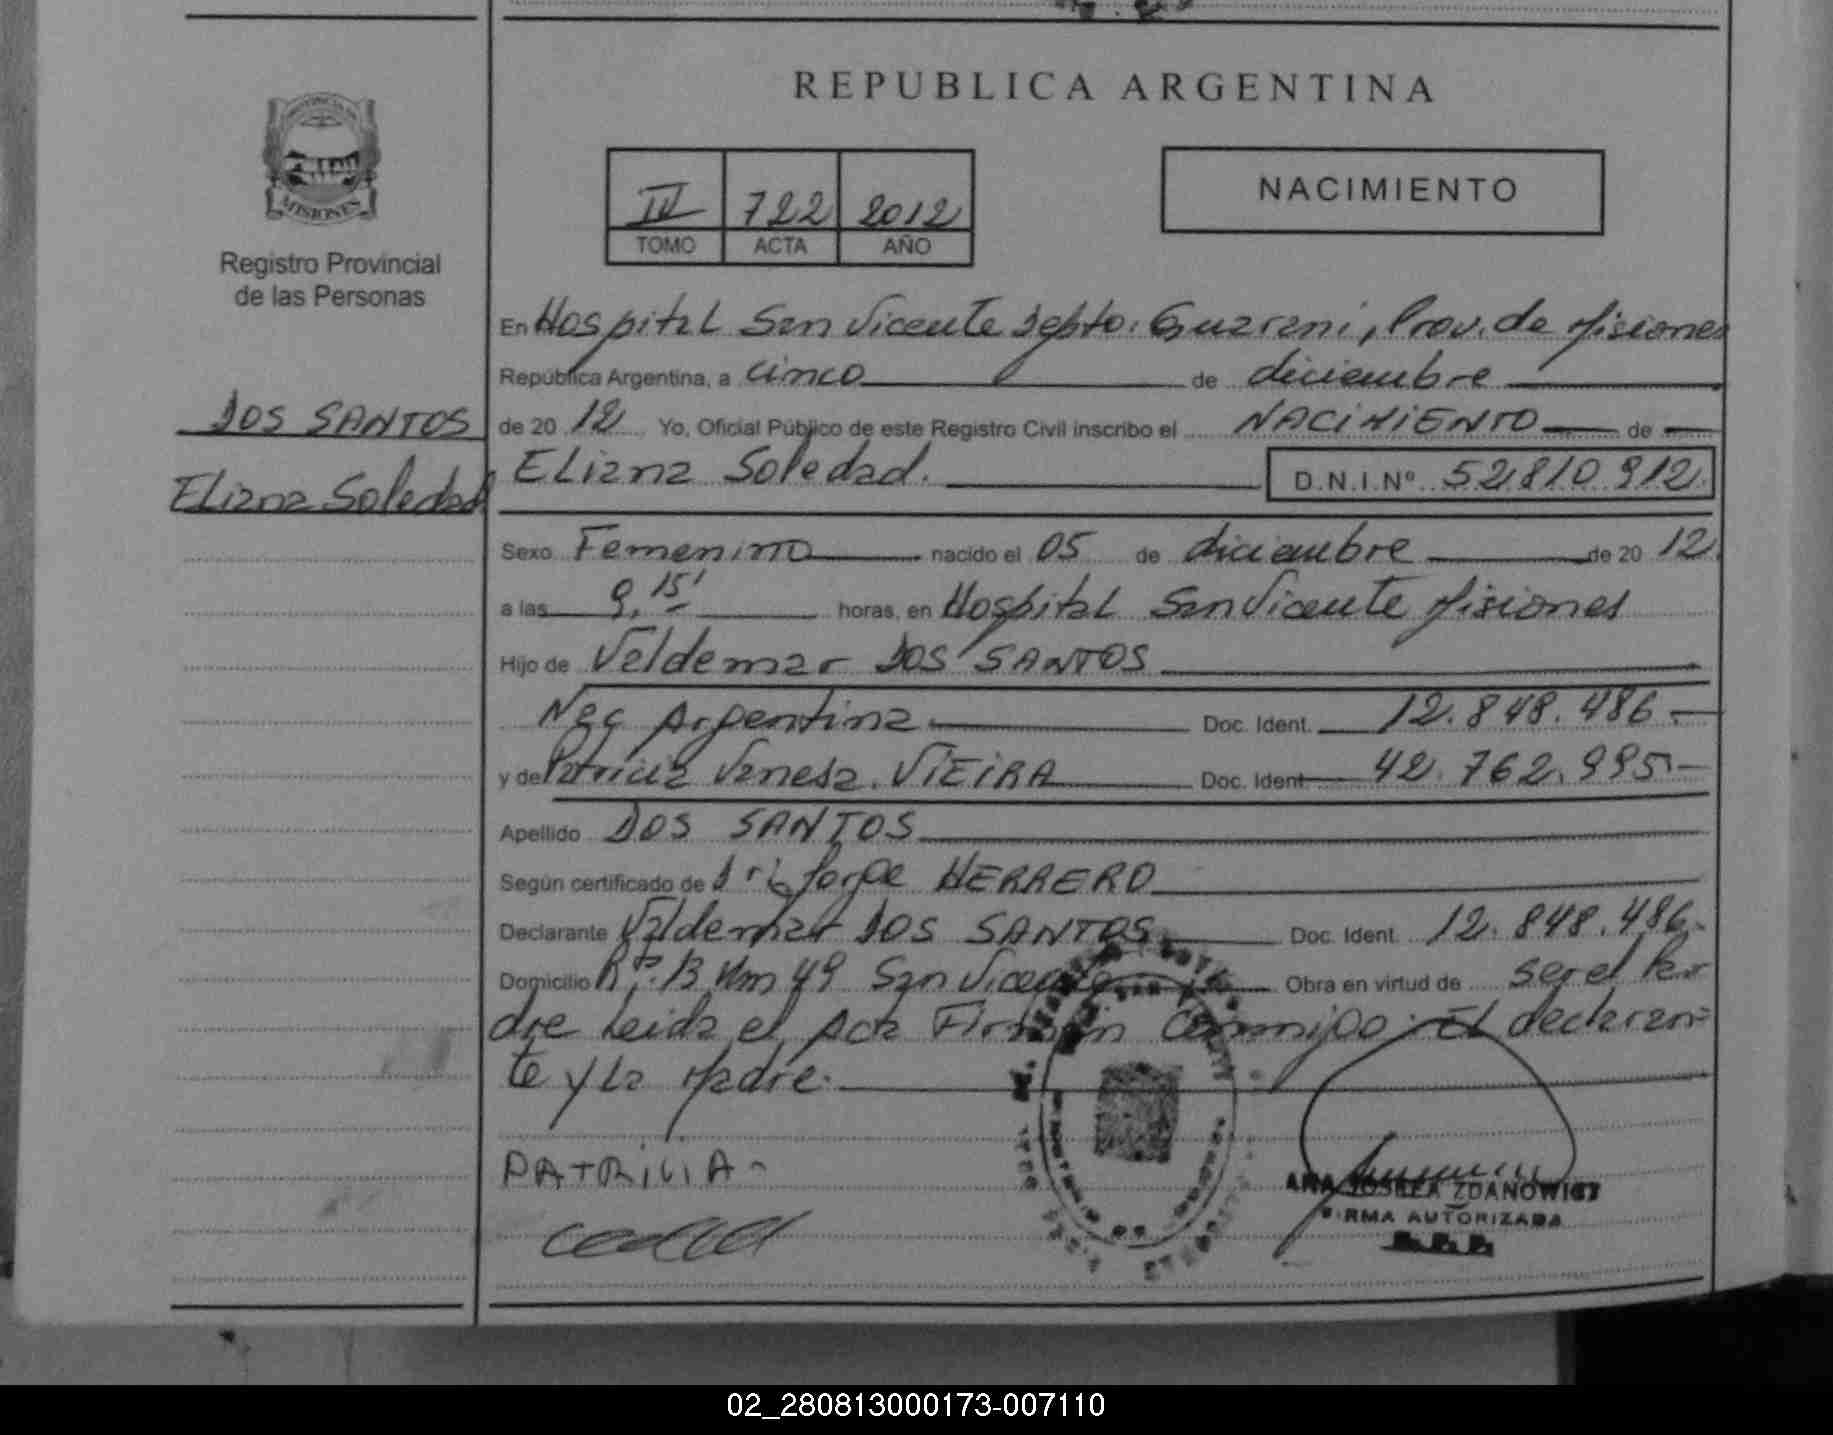 REPUBLICA ARGENTINA
MISIONES
Registro Provincial
de las Personas
IV 722 2012
TOMO ACTA AÑO
NACIMIENTO
En Hospital San Vicente Depto. Guarani, Prov. de Misiones
República Argentina, a cinco de diciembre
DOS SANTOS
Eliana Soledad
de 20 12 Yo, Oficial Público de este Registro Civil inscribo el NACIMIENTO de
Eliana Soledad. D.N.I.Nº 52.810.912.
Sexo Femenino nacido el 05 de diciembre de 20 12.
a las 9,15' horas, en Hospital San Vicente Misiones
Hijo de Valdemar DOS SANTOS
Nac Argentina Doc. Ident. 12.848.486.-
y de Patricia Vanesa. VIEIRA Doc. Ident 42.762.995.-
Apellido DOS SANTOS
Según certificado de Jorge HERRERO
Declarante Valdemar DOS SANTOS Doc. Ident. 12.848.486.
Domicilio Rta. 13 Km 49 San Vicente Obra en virtud de ser el Pa-
dre Leida el Acta Firman Conmigo: El declaran-
te y La Madre.
PATRICIA
ANA ZDANOWICZ
FIRMA AUTORIZADA
02_280813000173-007110